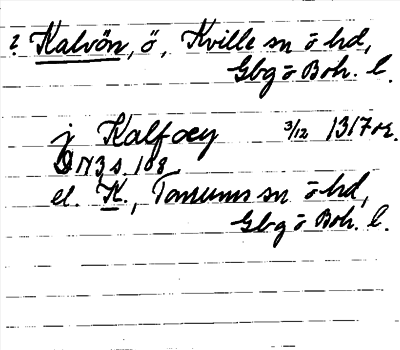 ? Kalvön, ö, Kville sn o hd,
Gbg o Boh. l.
j Kalfoey 3/12 1317 or.
DN 3 s. 108
el. K., Tanums sn o hd,
Gbg o Boh. l.